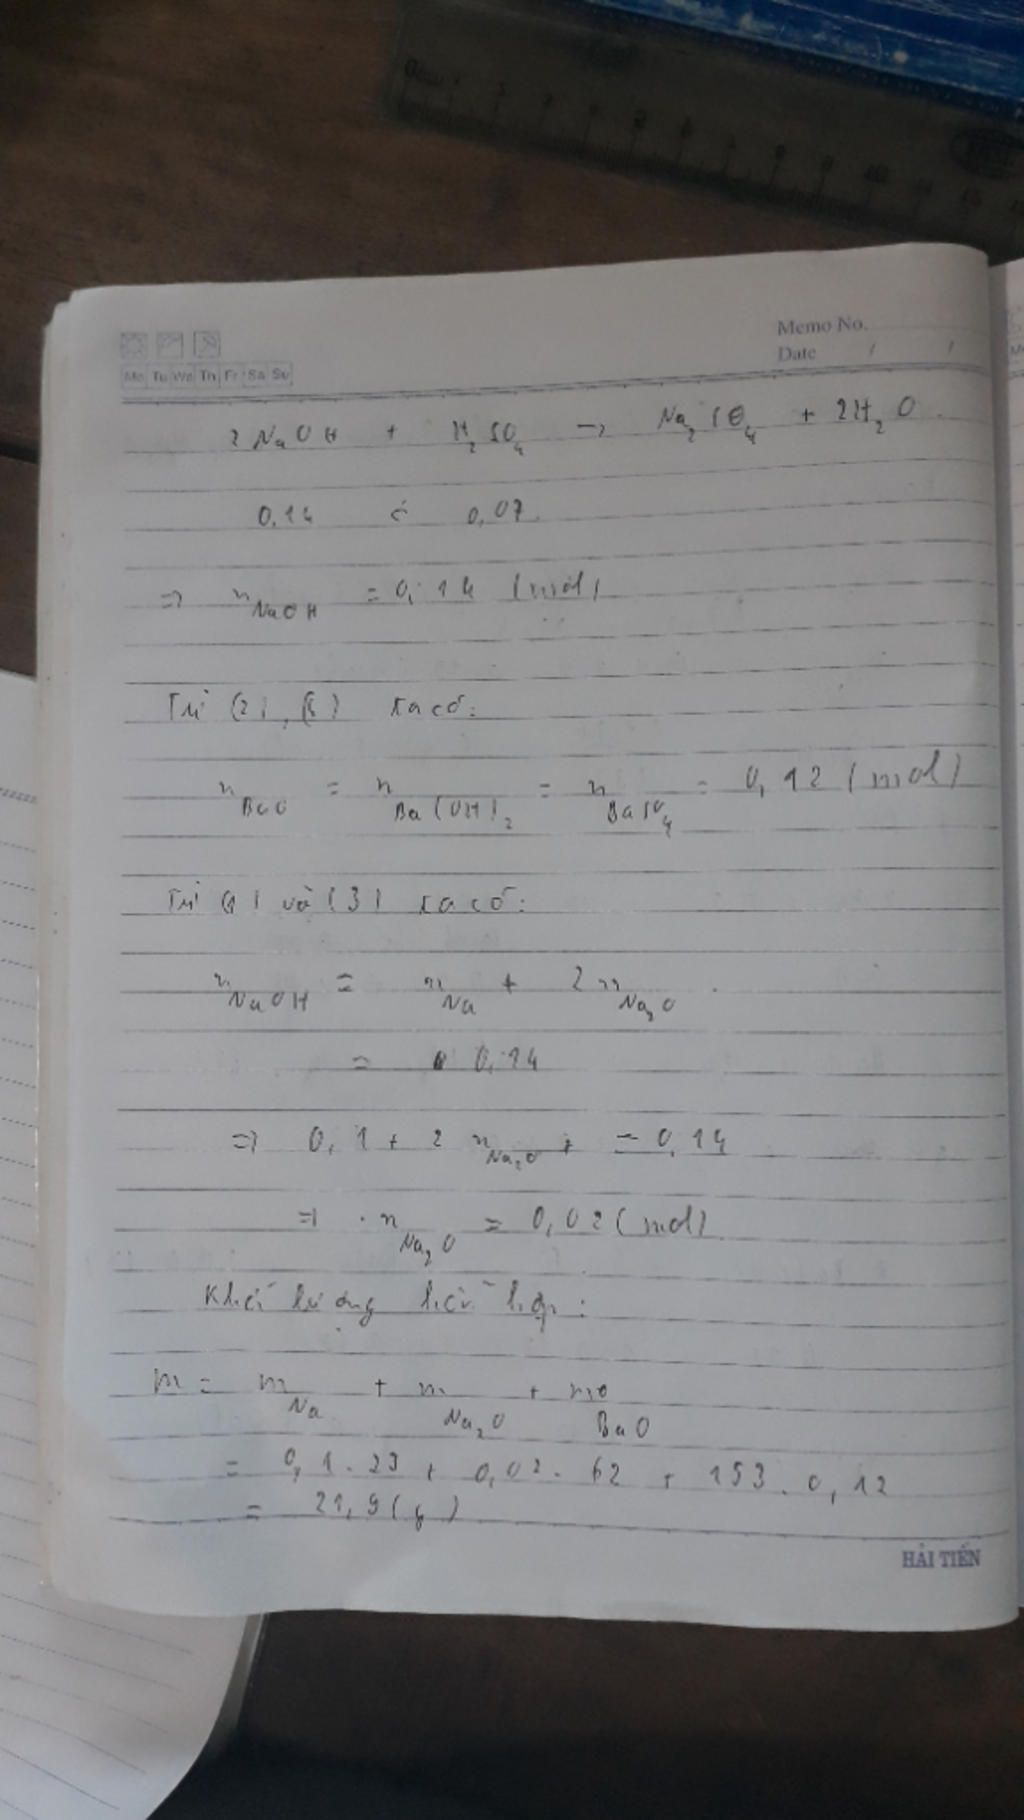 Memo No.
Date / /
Mo Tu We Th Fr Sa Su
2NaOH + H₂SO₄ → Na₂SO₄ + 2H₂O
0,14 ← 0,07
⇒ n NaOH = 0,14 (mol)
Từ (2), ta có:
n BaO = n Ba(OH)₂ = n BaSO₄ = 0,12 (mol)
Từ (1) và (3) ta có:
n NaOH = n Na + 2 n Na₂O
= 0,14
⇒ 0,1 + 2 n Na₂O = 0,14
⇒ n Na₂O = 0,02 (mol)
Khối lượng hỗn hợp:
m = m Na + m Na₂O + m BaO
= 0,1 . 23 + 0,02 . 62 + 153 . 0,12
= 21,9 (g)
HẢI TIẾN